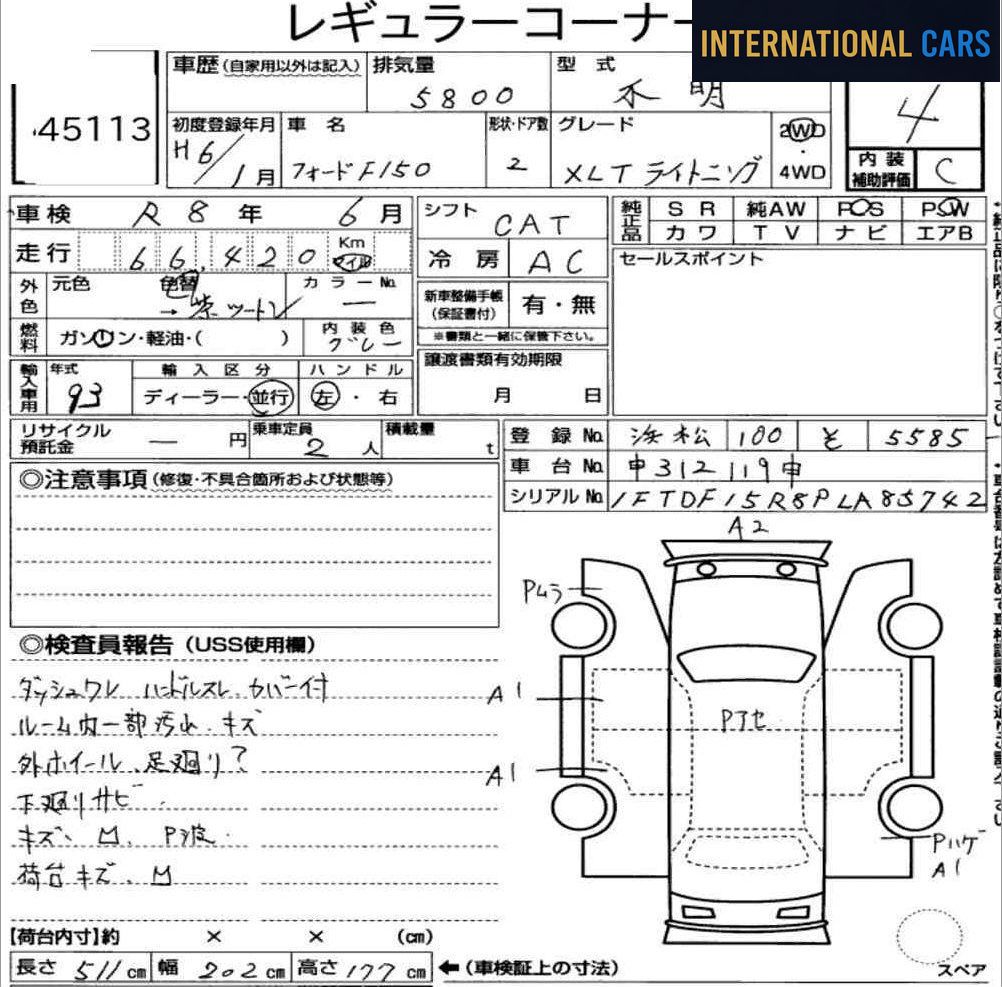 レギュラーコーナー
INTERNATIONAL CARS
45113
車歴(自家用以外は記入) 排気量 型式
5800 不明
4
初度登録年月 車名 形状・ドア数 グレード 2WD・4WD
H6/1月 フォードF150 2 XLT ライトニング
内装補助評価 C
車検 R8年 6月
走行 66,420 Km マイル
シフト CAT
冷房 AC
純正品 SR 純AW PS PW
カワ TV ナビ エアB
外色 元色 色替 カラーNo.
→ 紫ツートン —
新車整備手帳(保証書付) 有・無
※書類と一緒に保管下さい。
セールスポイント
燃料 ガソリン・軽油・( ) 内装色 グレー
譲渡書類有効期限
月 日
輸入車用 年式 93
輸入区分 ディーラー・並行
ハンドル 左・右
リサイクル預託金 — 円 乗車定員 2人 積載量 t
登録No. 浜松 100 そ 5585
車台No. 申312119申
シリアルNo. 1FTDF15R8PLA85742
◎注意事項(修復・不具合箇所および状態等)
A2
Pムラ
A1
A1
Pアセ
Pハゲ
A1
スペア
◎検査員報告(USS使用欄)
ダッシュワレ ハンドルスレ、カバー付
ルーム内一部汚れ、キズ
外ホイール、足廻り?
下廻りサビ
キズ、凹、P波
荷台キズ、凹
【荷台内寸】約 × × (cm)
長さ 511cm 幅 202cm 高さ 177cm ←(車検証上の寸法)